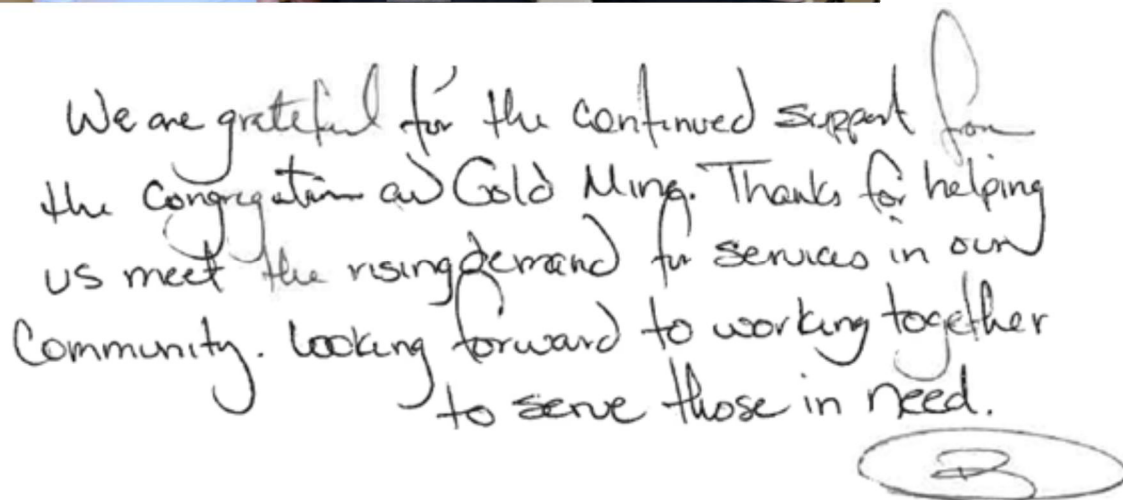 We are grateful for the continued support from
the congregation and Gold Ming. Thanks for helping
us meet the rising demand for services in our
Community. Looking forward to working together
to serve those in need.